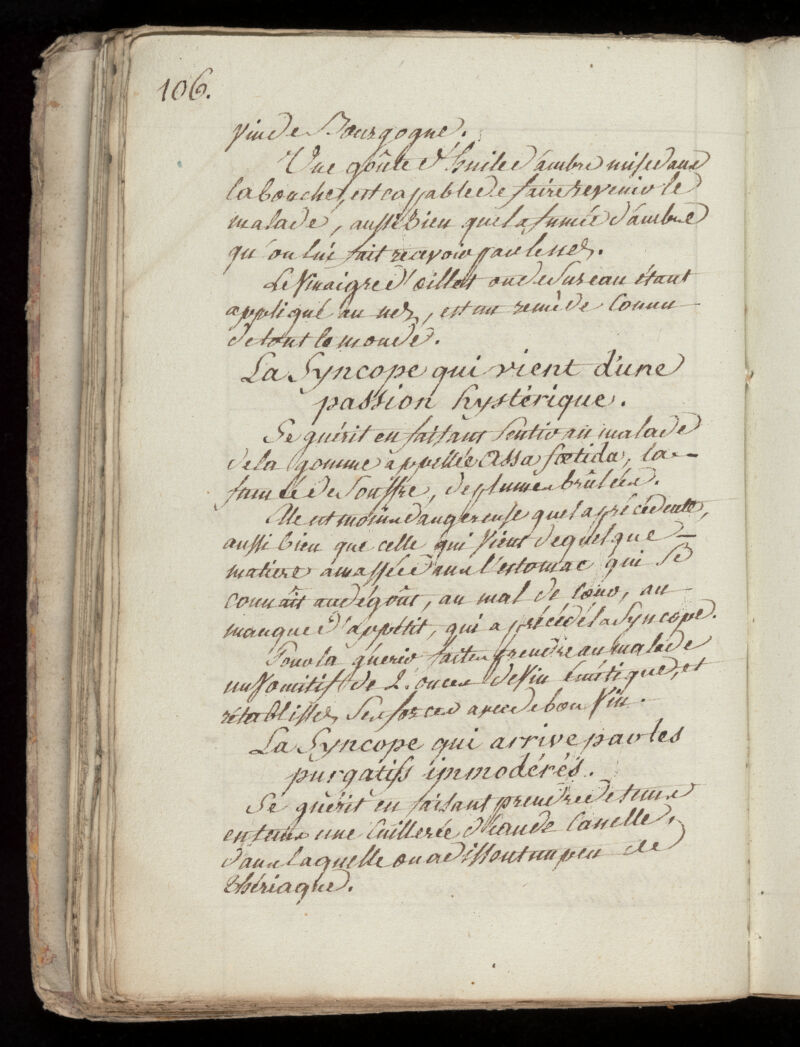 106.
Vin de Bourgogne.
Une goûte d'huile d'ambre mise dans
la bouche, est capable de faire revenir le
malade, aussi bien que la fumée d'ambre
qu'on lui fait recevoir par le nez.
Le Vinaigre d'œillet ou de Sureau étant
appliqué au nez, est un remède Connu
de tout le monde.
La Syncope qui vient d'une
passion hystérique.
Se guérit en faisant Sentir au malade
de la gomme appellée Assa fœtida, la
fumée de Souffre, de plumes brûlées.
Elle est moins dangereuse que la précédente,
aussi bien que celle qui Vient de quelque
matiere amassée dans l'estomac qui Se
Connaît au dégoût, au mal de Cœur, au
manque d'appétit, qui a précédé la Syncope.
Pour la guérir faites prendre au malade
un Vomitif de 2. onces de Vin émétique, et
rétablissez Ses forces avec de bon Vin.
La Syncope qui arrive par les
purgatifs immodérés.
Se guérit en faisant prendre de tems
en tems une Cuillerée d'eau de Canelle,
dans laquelle on a dissout un peu de
thériaque.